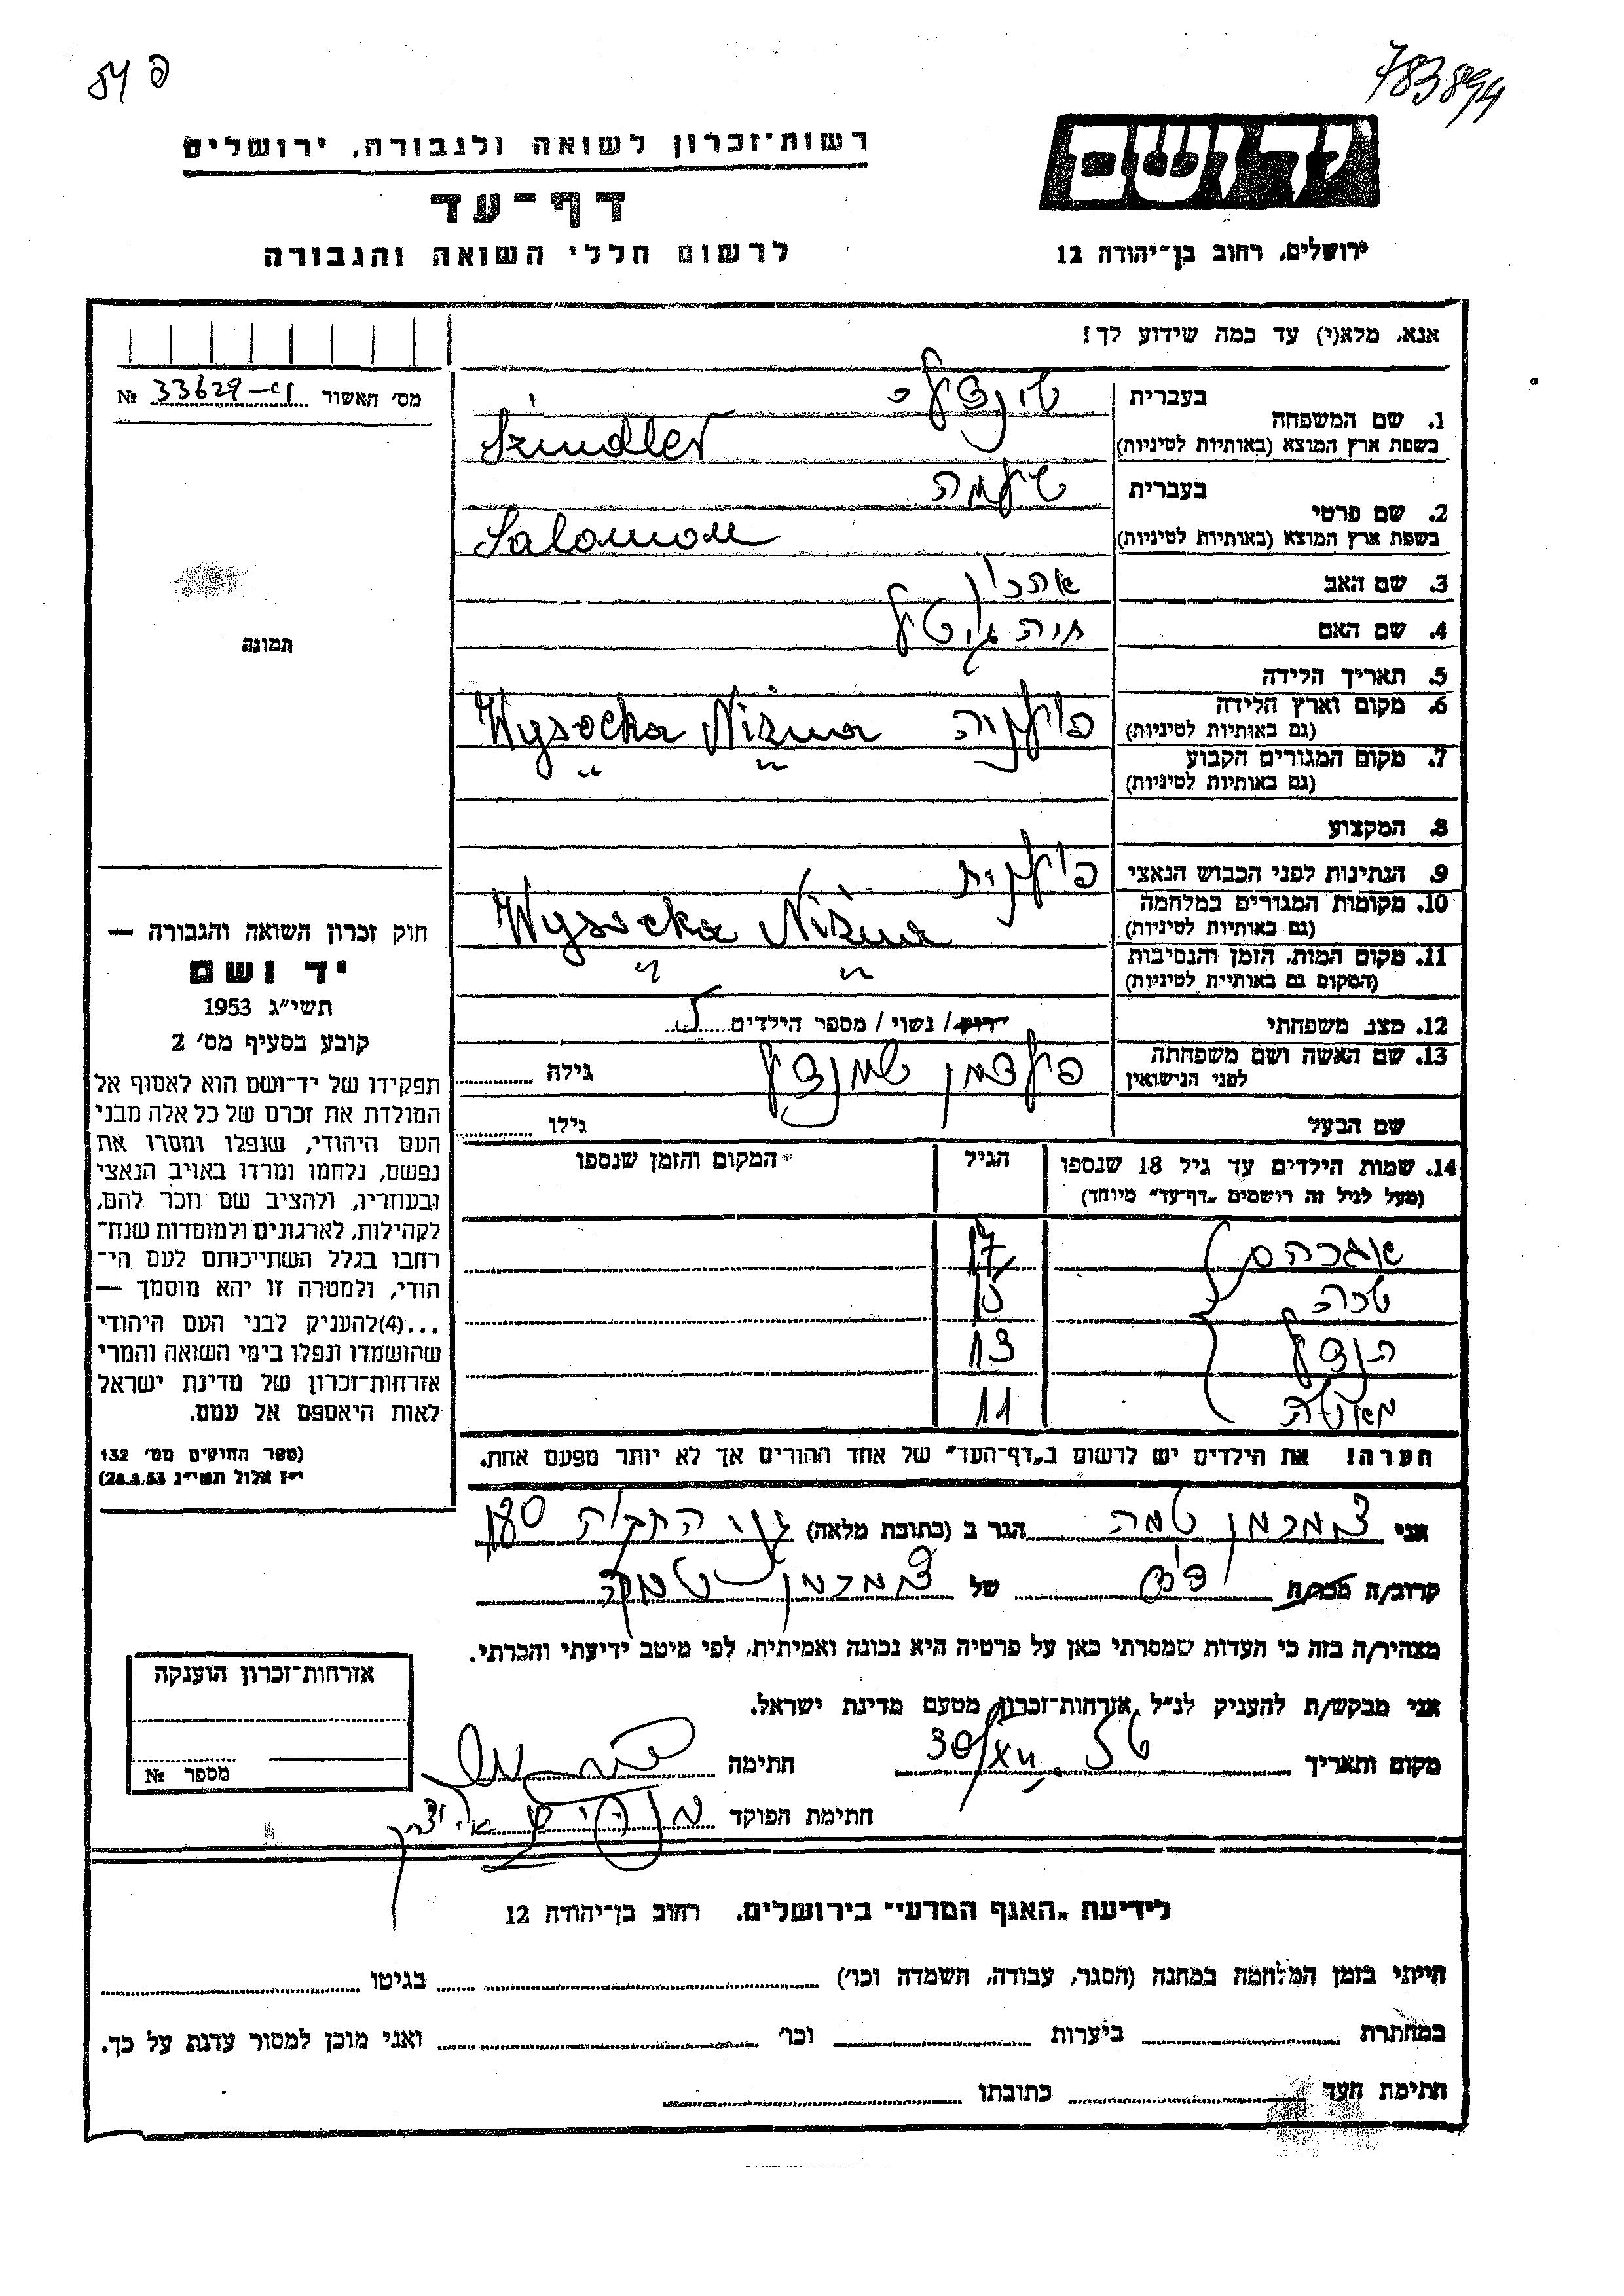 54 פ
783894
רשות־זכרון לשואה ולגבורה, ירושלים
דף־עד
לרשום חללי השואה והגבורה
יד ושם
ירושלים, רחוב בן־יהודה 12
אנא, מלא(י) עד כמה שידוע לך!
מס' האשור 33629 №
תמונה
1. שם המשפחה
בעברית
בשפת ארץ המוצא (באותיות לטיניות) Szindler
2. שם פרטי
בעברית שלמה
בשפת ארץ המוצא (באותיות לטיניות) Salomon
3. שם האב אהרון
4. שם האם חיה גיטל
5. תאריך הלידה
6. מקום וארץ הלידה (גם באותיות לטיניות) פולניה Wysocka Niżna
7. מקום המגורים הקבוע (גם באותיות לטיניות) " "
8. המקצוע
9. הנתינות לפני הכבוש הנאצי פולנית
10. מקומות המגורים במלחמה (גם באותיות לטיניות) Wysocka Niżna
11. מקום המות, הזמן והנסיבות (המקום גם באותיות לטיניות) " "
12. מצב משפחתי רווק / נשוי / מספר הילדים 5
13. שם האשה ושם משפחתה לפני הנישואין פלדמן שינדל גילה
שם הבעל גילו
14. שמות הילדים עד גיל 18 שנספו
(מעל לגיל זה רושמים „דף־עד" מיוחד)
הגיל
המקום והזמן שנספו
אברהם 17
שרה 15
הנדל 13
11
הערה! את הילדים יש לרשום ב„דף־העד" של אחד ההורים אך לא יותר מפעם אחת.
חוק זכרון השואה והגבורה —
יד ושם
תשי"ג 1953
קובע בסעיף מס' 2
תפקידו של יד־ושם הוא לאסוף אל
המולדת את זכרם של כל אלה מבני
העם היהודי, שנפלו ומסרו את
נפשם, נלחמו ומרדו באויב הנאצי
ובעוזריו, ולהציב שם וזכר להם,
לקהילות, לארגונים ולמוסדות שנח־
רבו בגלל השתייכותם לעם הי־
הודי, ולמטרה זו יהא מוסמך —
...(4)להעניק לבני העם היהודי
שהושמדו ונפלו בימי השואה והמרי
אזרחות־זכרון של מדינת ישראל
לאות היאספם אל עמם.
(ספר החוקים מס' 132
י"ז אלול תשי"ג 28.8.53)
אני הגר ב (כתובת מלאה) 180
קרוב/ה מכר/ה של
מצהיר/ה בזה כי העדות שמסרתי כאן על פרטיה היא נכונה ואמיתית, לפי מיטב ידיעתי והכרתי.
אני מבקש/ת להעניק לנ"ל אזרחות־זכרון מטעם מדינת ישראל.
מקום ותאריך חתימה
חתימת הפוקד
אזרחות־זכרון הוענקה
מספר №
לידיעת „האגף המדעי" בירושלים. רחוב בן־יהודה 12
הייתי בזמן המלחמה במחנה (הסגר, עבודה, השמדה וכו') בגיטו
במחתרת ביערות וכו' ואני מוכן למסור עדות על כך.
חתימת העד כתובתו